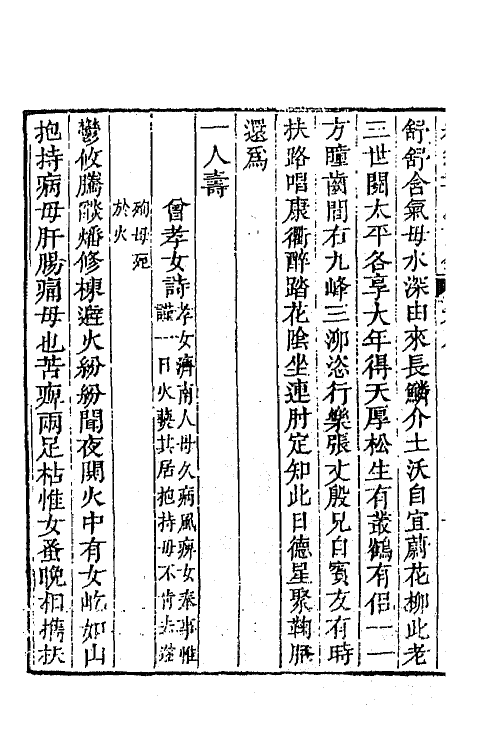 舒舒含氣毋水深由來長鱗介土沃自宜蔚花柳此老
三世閱太平各享大年得天厚松生有叢鶴有侶一一
方瞳齒閒右九峰三泖恣行樂張丈殷兄自賓友有時
扶路唱康衢醉踏花陰坐連肘定知此日德星聚鞠䠇
還爲
一人壽
曾孝女詩孝女濟南人母久病風痹女奉事惟
謹一日火爇其居抱持母不肯去遂
殉母死
於火
鬱攸騰燄燔修棟避火紛紛聞夜閧火中有女屹如山
抱持病母肝腸痛母也苦痹兩足枯惟女蚤晚相攜扶